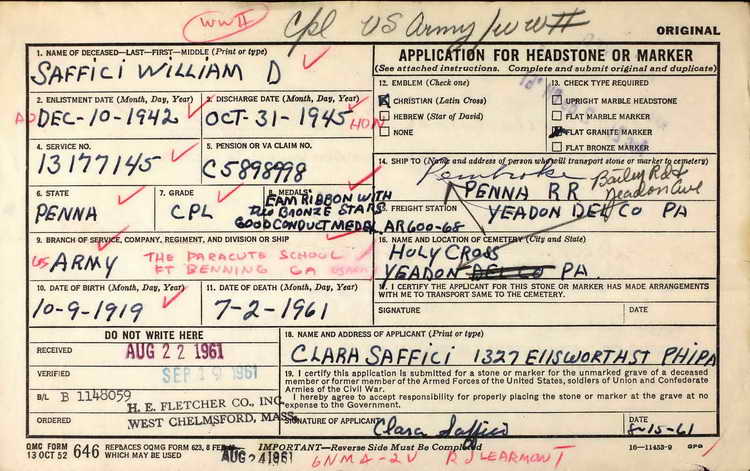 WW II
Cpl US Army / WW II
ORIGINAL
1. NAME OF DECEASED—LAST—FIRST—MIDDLE (Print or type)
SAFFICI WILLIAM D
APPLICATION FOR HEADSTONE OR MARKER
(See attached instructions. Complete and submit original and duplicate)
2. ENLISTMENT DATE (Month, Day, Year)
DEC-10-1942
3. DISCHARGE DATE (Month, Day, Year)
OCT-31-1945 HON
12. EMBLEM (Check one)
X CHRISTIAN (Latin Cross)
HEBREW (Star of David)
NONE
13. CHECK TYPE REQUIRED
UPRIGHT MARBLE HEADSTONE
FLAT MARBLE MARKER
X FLAT GRANITE MARKER
FLAT BRONZE MARKER
4. SERVICE NO.
13177145
5. PENSION OR VA CLAIM NO.
C5898998
14. SHIP TO (Name and address of person who will transport stone or marker to cemetery)
Pembroke
PENNA RR
Bailey Rd &
Yeadon Ave
6. STATE
PENNA
7. GRADE
CPL
8. MEDALS
EAM RIBBON WITH
TWO BRONZE STARS
GOOD CONDUCT MEDAL AR600-68
15. FREIGHT STATION
YEADON DEL CO PA
9. BRANCH OF SERVICE, COMPANY, REGIMENT, AND DIVISION OR SHIP
US ARMY THE PARACUTE SCHOOL
FT BENNING GA
16. NAME AND LOCATION OF CEMETERY (City and State)
HOLY CROSS
YEADON DEL CO PA.
10. DATE OF BIRTH (Month, Day, Year)
10-9-1919
11. DATE OF DEATH (Month, Day, Year)
7-2-1961
17. I CERTIFY THE APPLICANT FOR THIS STONE OR MARKER HAS MADE ARRANGEMENTS
WITH ME TO TRANSPORT SAME TO THE CEMETERY.
SIGNATURE
DATE
DO NOT WRITE HERE
RECEIVED
AUG 22 1961
VERIFIED
SEP 19 1961
B/L B 1148059
H. E. FLETCHER CO., INC.
ORDERED
WEST CHELMSFORD, MASS.
18. NAME AND ADDRESS OF APPLICANT (Print or type)
CLARA SAFFICI 1327 EllSWORTH ST PHIPA
19. I certify this application is submitted for a stone or marker for the unmarked grave of a deceased
member or former member of the Armed Forces of the United States, soldiers of Union and Confederate
Armies of the Civil War.
I hereby agree to accept responsibility for properly placing the stone or marker at the grave at no
expense to the Government.
SIGNATURE OF APPLICANT
Clara Saffici
DATE
8-15-61
QMC FORM
13 OCT 52
646
REPLACES OQMG FORM 623, 8 FEB
WHICH MAY BE USED
AUG 24 1961
IMPORTANT—Reverse Side Must Be Completed
16—11453-9
GPO
6NMA-2V R J LEARMONT